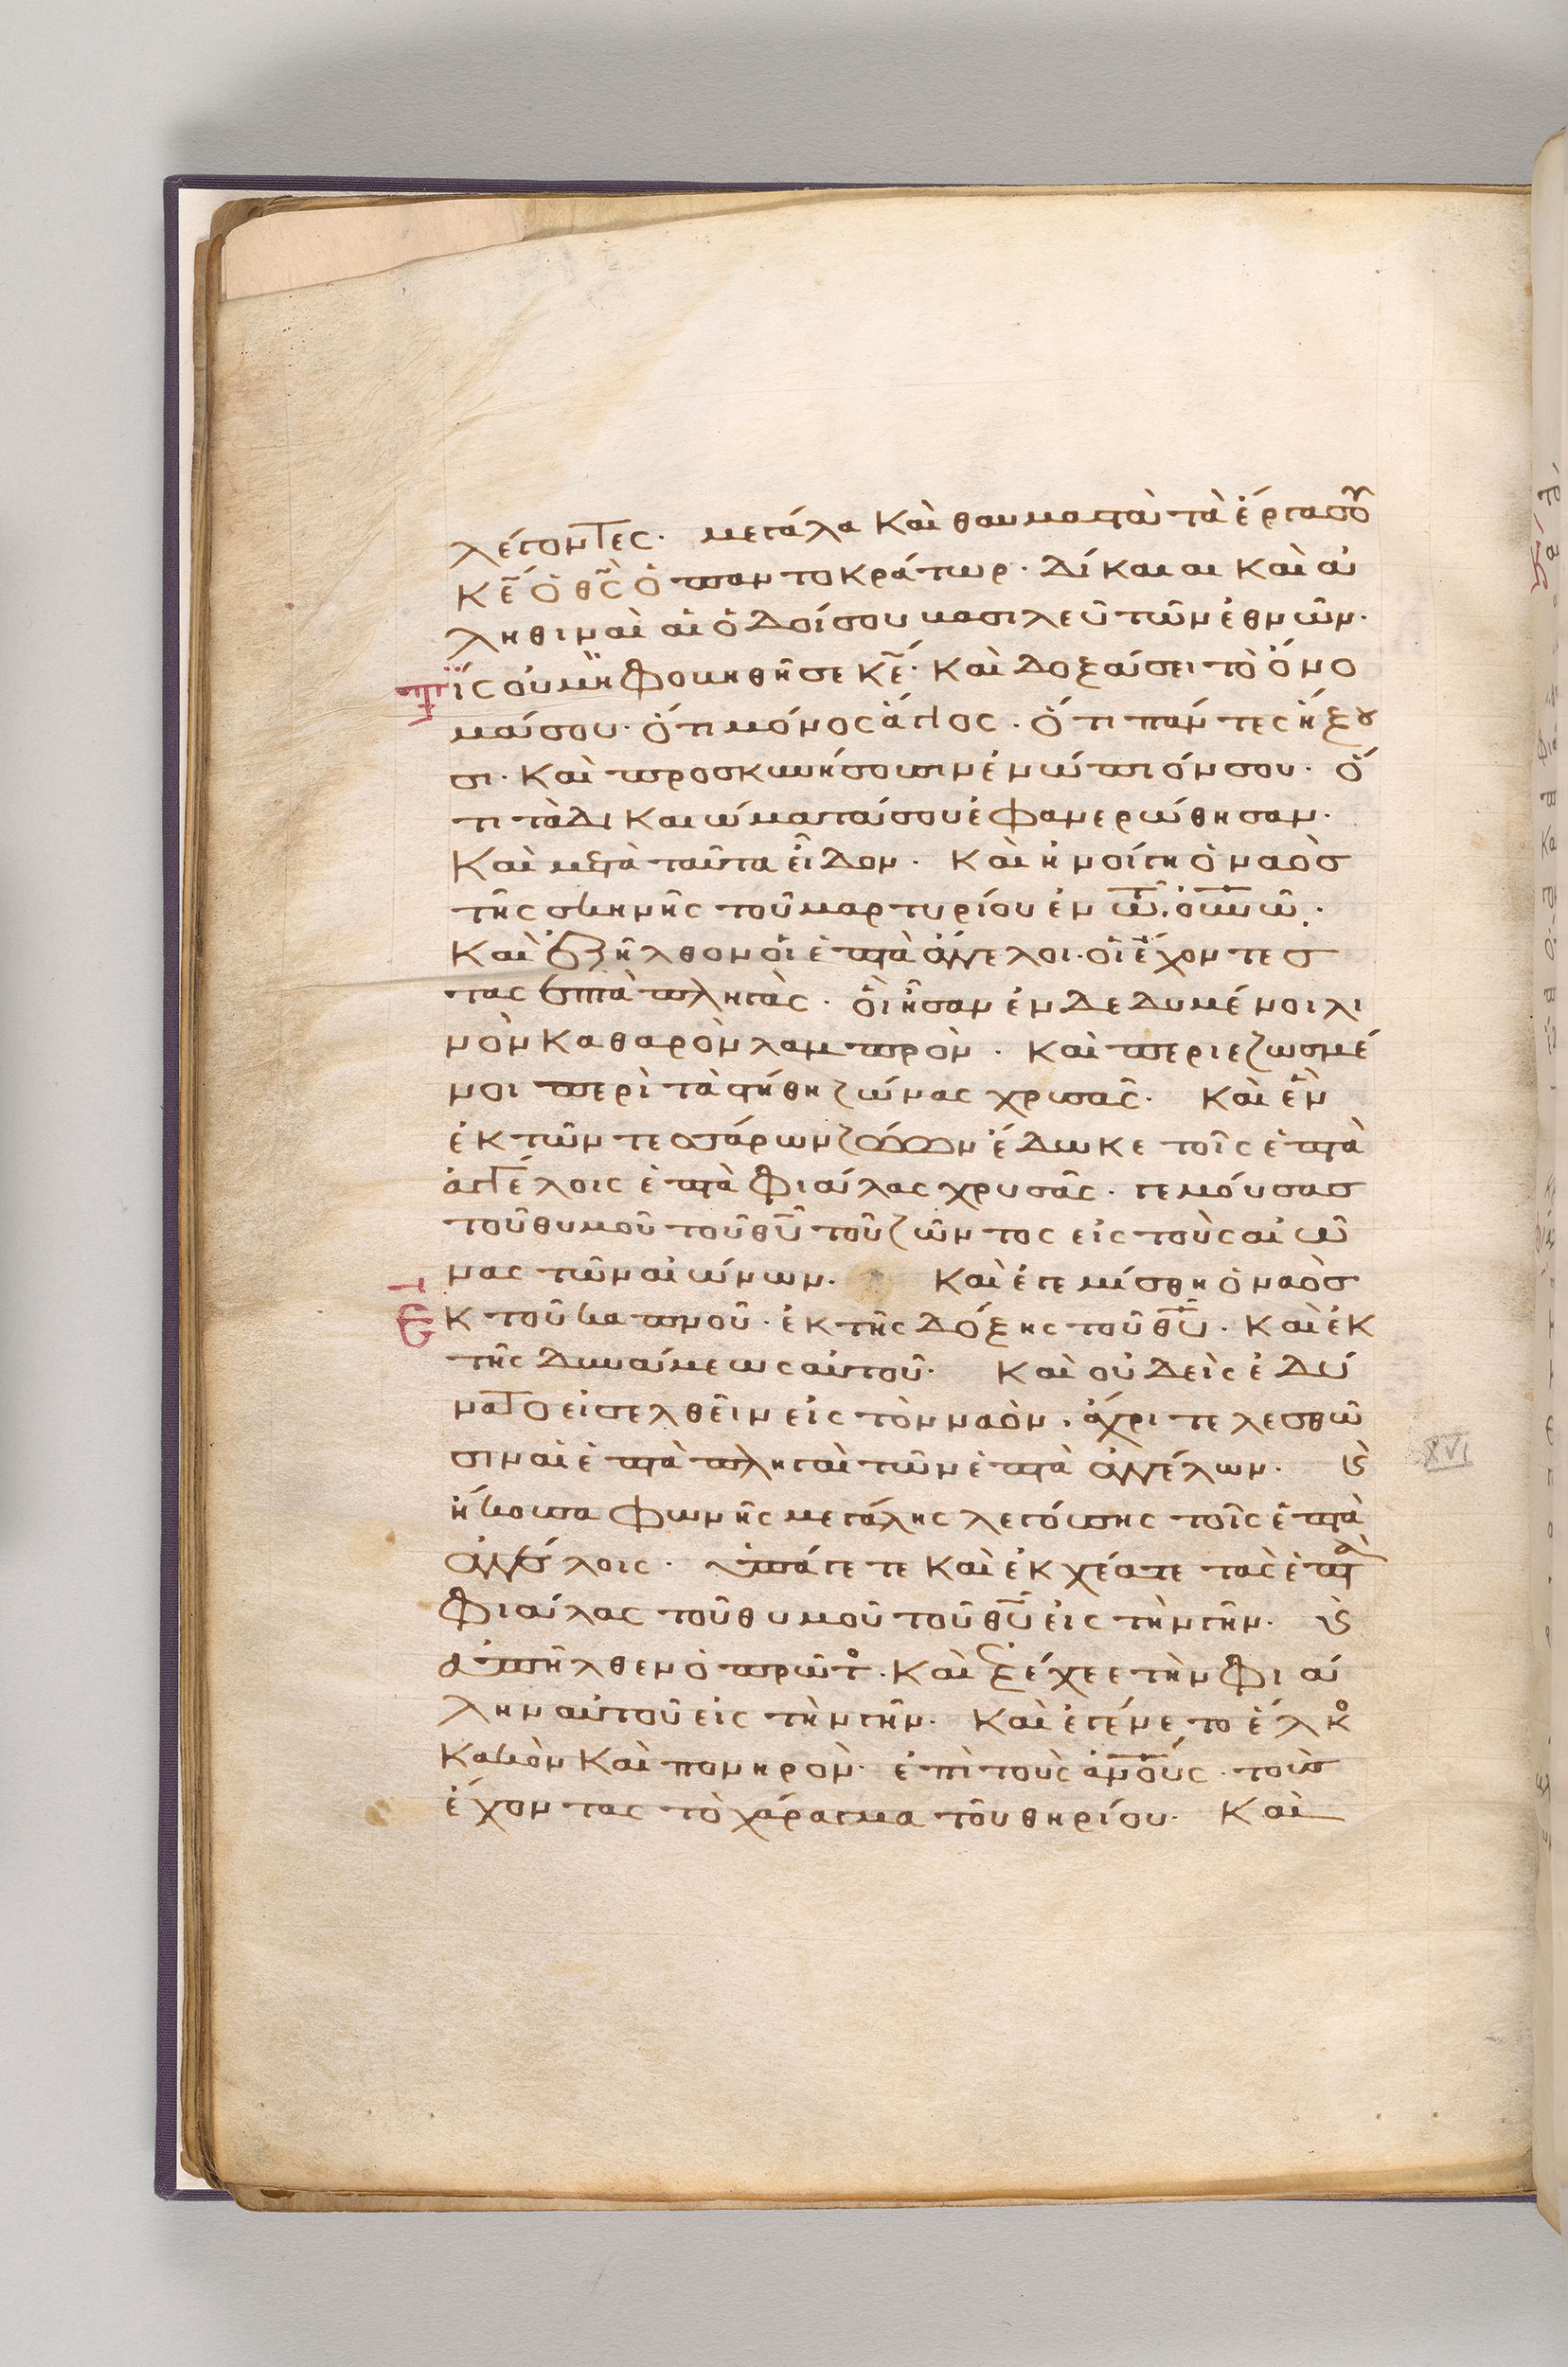 λέγοντες· μεγάλα καὶ θαυμαστὰ τὰ ἔργα σοῦ
κε̄ ὁ θς̄ ὁ παντοκράτωρ· δίκαιαι καὶ ἀ
ληθιναὶ αἱ ὁδοί σου βασιλεῦ τῶν ἐθνῶν·
Τίς οὐ μὴ φοβηθῆ σε κε̄· καὶ δοξάσει τὸ ὄνο
μά σου· ὅτι μόνος ἅγιος· ὅτι πάντες ἥξου
σι· καὶ προσκυνήσουσιν ἐνώπιόν σου· ὅ
τι τὰ δικαιώματά σου ἐφανερώθησαν·
καὶ μετὰ ταῦτα εἶδον· καὶ ἠνοίγη ὁ ναὸς
τῆς σκηνῆς τοῦ μαρτυρίου ἐν τῶ οὐνῶ·
καὶ ἐξῆλθον οἱ ἑπτὰ ἄγγελοι· οἱ ἔχοντες
τας ἑπτὰ πληγὰς· οἳ ἦσαν ἐνδεδυμένοι λι
νὸν καθαρὸν λαμπρὸν· καὶ περιεζωσμέ
νοι περὶ τὰ στήθη ζώνας χρυσᾶς· καὶ ἓν
ἐκ τῶν τεσσάρων ζώων ἔδωκε τοῖς ἑπτὰ
ἀγγέλοις ἑπτὰ φιάλας χρυσᾶς· γεμούσας
τοῦ θυμοῦ τοῦ θῡ τοῦ ζῶντος εἰς τοὺς αἰῶ
νας τῶν αἰώνων· καὶ ἐγεμίσθη ὁ ναὸς
ἐκ τοῦ καπνοῦ· ἐκ τῆς δόξης τοῦ θῡ· καὶ ἐκ
τῆς δυνάμεως αὐτοῦ· καὶ οὐδεὶς ἐδύ
νατο εἰσελθεῖν εἰς τὸν ναὸν· ἄχρι τελεσθῶ
σιν αἱ ἑπτὰ πληγαὶ τῶν ἑπτὰ ἀγγέλων· ϗ
XVI
ἤκουσα φωνῆς μεγάλης λεγούσης τοῖς ἑπτὰ
ἀγγέλοις· ὑπάγετε καὶ ἐκχέατε τὰς ἑπτὰ
φιάλας τοῦ θυμοῦ τοῦ θῡ εἰς τὴν γῆν· ϗ
ἀπῆλθεν ὁ πρῶτος· καὶ ἐξέχεε τὴν φιά
λην αὐτοῦ εἰς τὴν γῆν· καὶ ἐγένετο ἕλκος
κακὸν καὶ πονηρὸν· ἐπὶ τοὺς ἀνο̄υς· τοὺς
ἔχοντας τὸ χάραγμα τοῦ θηρίου· καὶ